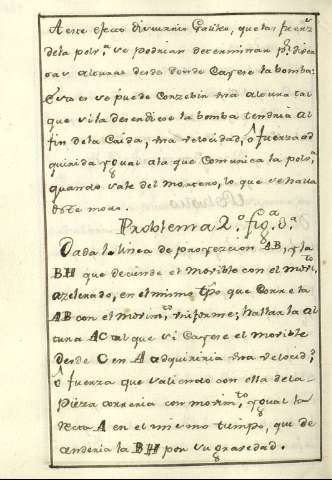 A este efecto discurrio Galileo, que las fuerz.s
de la polv.a se podrian determinar p.r diver
sas alturas desde donde Cayese la bomba:
Esto es se puede Conzebir vna altura tal
que si la descendiese la bomba tendria al
fin de la Caida, vna velocidad, ô fuerza ad
quirida ygual a la que Comunica la polv.a
quando sale del mortero, lo que se halla
deste modo.
Problema 2.º fig.a 3.a
Dada la linea de proyeccion AB, y la
BH que deciende el movible con el movi.to
azelerado, en el mismo tpo que Corre la
AB con el movim.to vniforme; hallar la al
tura AC tal que si Cayese el movible
desde C en A adquiriria vna velocid;
ô fuerza que saliendo con ella de la
Pieza correria con movim.to ygual la
recta A en el mismo tiempo, que de
cenderia la BH por su gravedad.